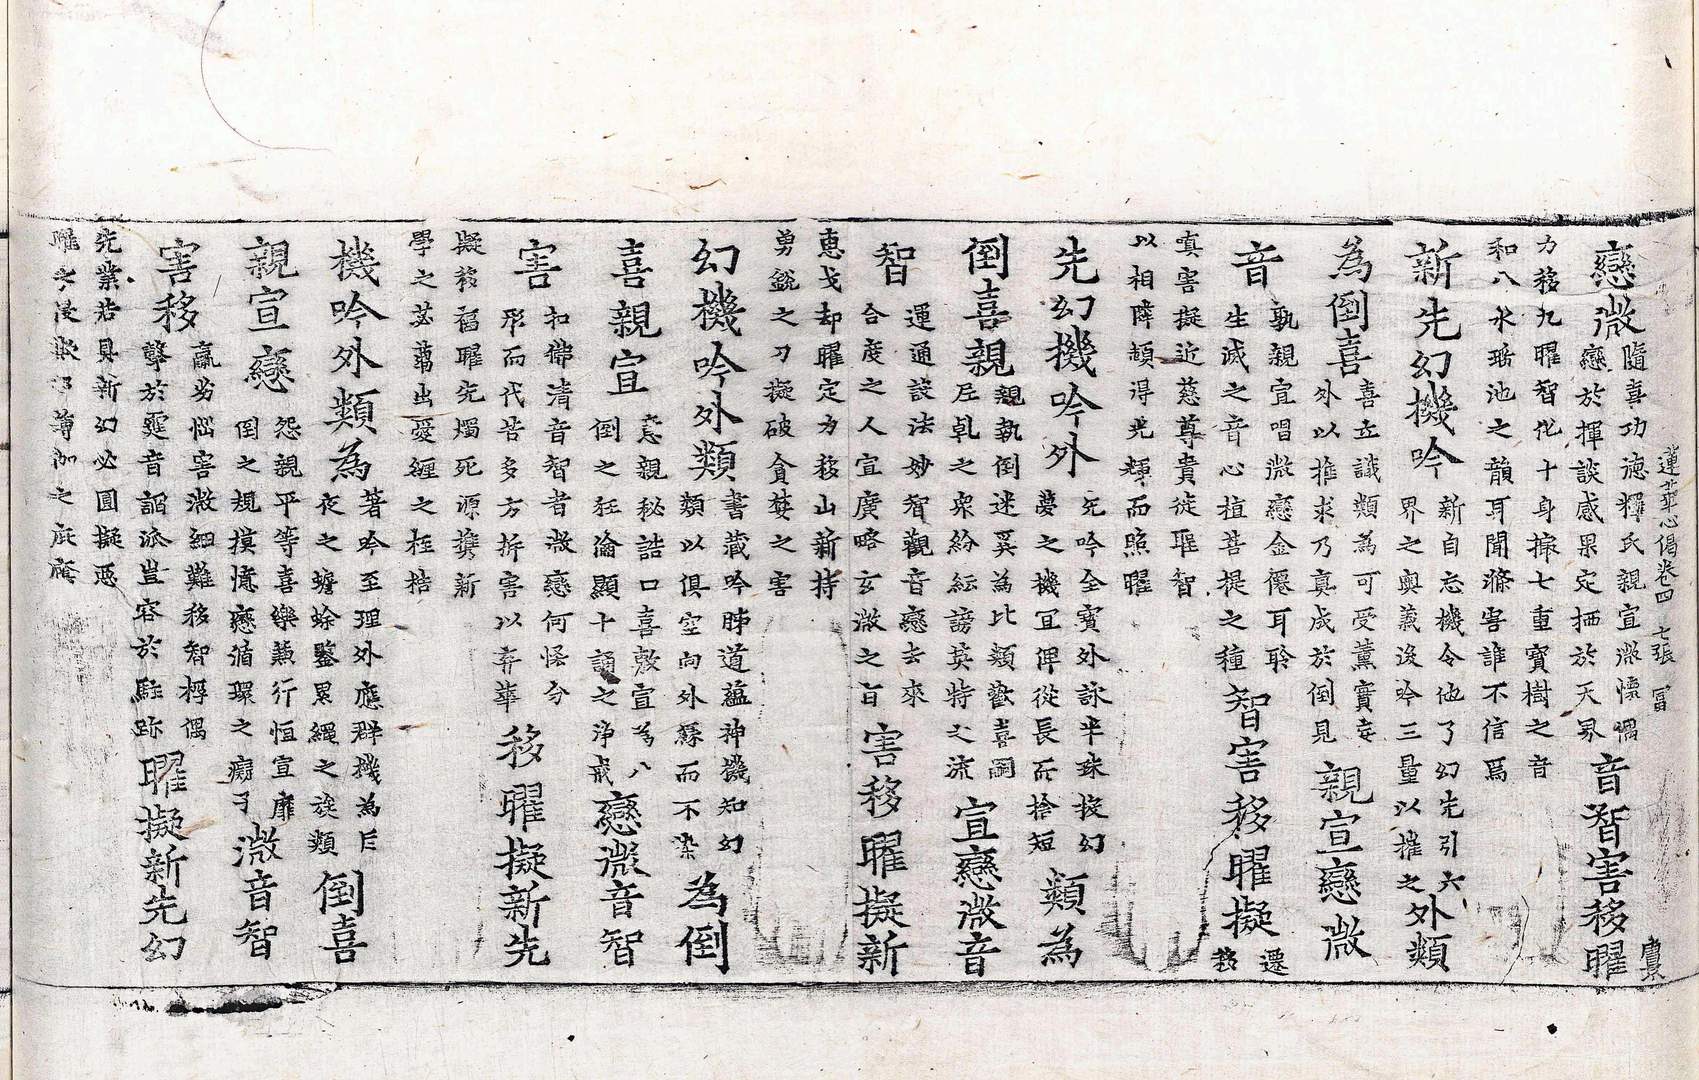 蓮華心偈卷四 七張 冨
慶
戀微
隨喜功德釋氏親宣微懷偶
戀於揮談感果定栖於天界
音智害移曜
力移九曜智化十身擬七重寶樹之音
和八水瑤池之韻耳聞滌害誰不信焉
新先幻機吟
新自忘機令他了幻先引六
界之奧義後吟三量以摧之
外類
為倒喜
喜立識類為可受薰實妄
外以推求乃真成於倒見
親宣戀微
音
孰親宣唱微戀金僊耳聆
生滅之音心植菩提之種
智害移曜擬
遷
移
嗔害擬近慈尊貴徒聖智
以相障頓得光輝而照曜
先幻機吟外
先吟全寶外詠半珠採幻
夢之機冝俾從長而捨短
類為
倒喜親
親執倒迷奚為比類歡喜嗣
尼軋之衆紛紜謗英特之流
宣戀微音
智
運通談法妙智觀音戀去來
合度之人宣廣略玄微之旨
害移曜擬新
惠戈却曜定力移山新持
勇銳之刀擬破貪婪之害
幻機吟外類
書藏吟肺道蘊神機知幻
類以俱空向外縁而不染
為倒
喜親宣
意親秘誥口喜敷宣為八
倒之狂淪顯十誦之淨戒
戀微音智
害
扣佛清音智者微戀何怪分
形而代苦多方折害以弃華
移曜擬新先
擬移福曜先燭死源擕新
學之苾蒭出憂纏之桎梏
機吟外類為
著吟至理外應群機為斥
夜之蟾蜍鑒累繩之族類
倒喜
親宣戀
怨親平等喜樂蕙行恒宣靡
倒之規摸憶戀循環之癡子
微音智
害移
羸劣惱害微細難移智桴偶
擊於霆音謟派豈容於駐跡
曜擬新先幻
先業若具新幻必圓擬惡
曜之侵欺薄伽之庇廕